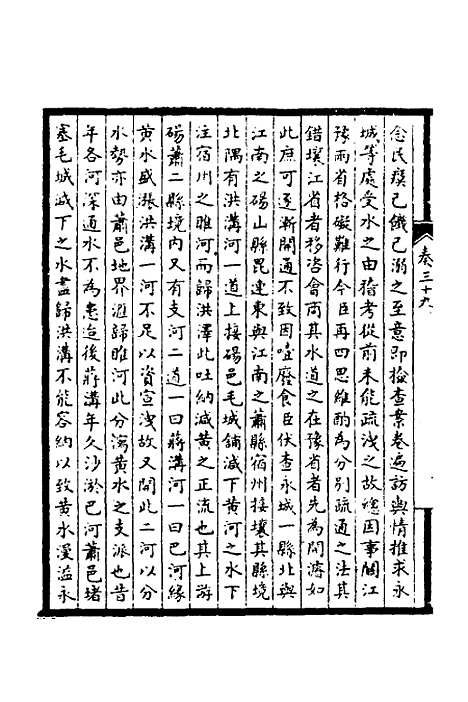 念民瘼己饑己溺之至意即檢查案卷遍訪輿情推求永
城等處受水之由稽考從前未能疏浚之故總因事關江
豫兩省格礙難行今臣再四思維酌為分別疏通之法其
錯壤江省者移咨會商其水道之在豫省者先為開濬如
此庶可逐漸開通不致因噎廢食臣伏查永城一縣北與
江南之碭山縣毘連東與江南之蕭縣宿州接壤其縣境
北隅有洪溝河一道上接碭邑毛城鋪減下黃河之水下
注宿州之睢河而歸洪澤此吐納減黃之正流也其上游
碭蕭二縣境內又有支河二道一曰蔣溝河一曰巴河緣
黃水盛漲洪溝一河不足以資宣洩故又開此二河以分
水勢亦由蕭邑地界滙歸睢河此分瀉黃水之支派也昔
年各河深通水不為患迨後蔣溝年久沙淤巴河蕭邑堵
塞毛城減下之水盡歸洪溝不能容納以致黃水漫溢永
奏三十九